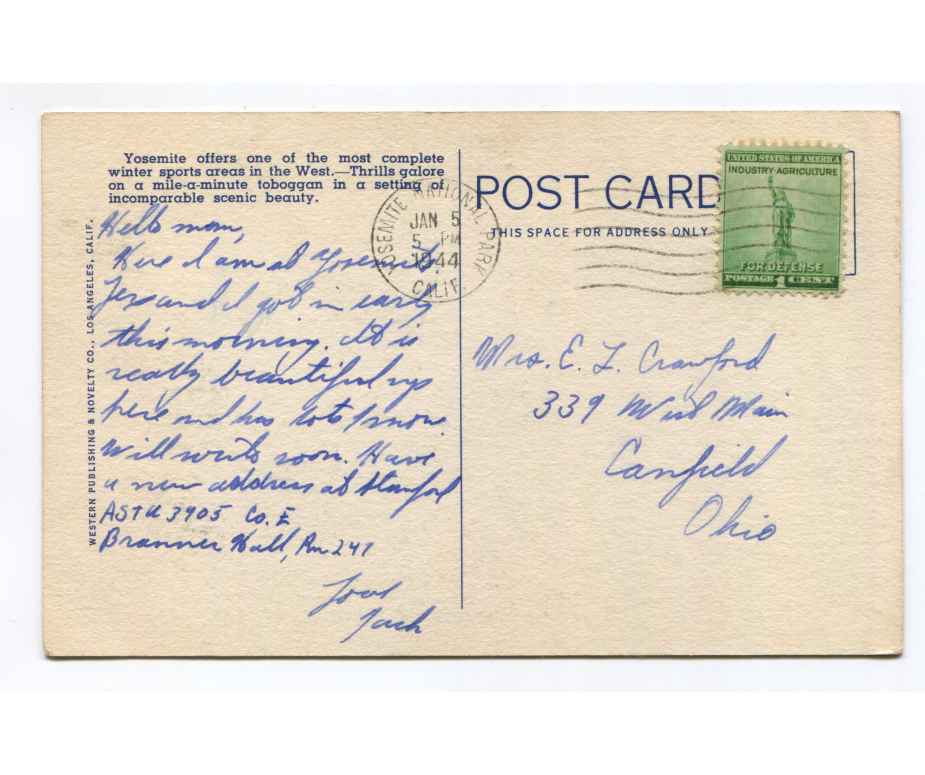 Yosemite offers one of the most complete
winter sports areas in the West.—Thrills galore
on a mile-a-minute toboggan in a setting of
incomparable scenic beauty.
Hello mom,
Here I am at Yosemite.
and I got in early
this morning. It is
really beautiful up
here and has lots snow.
Will write soon. Have
a new address at Stanford
ASTU 3905 Co. E
Branner Hall, Rm 247
Love
Jack
WESTERN PUBLISHING & NOVELTY CO., LOS ANGELES, CALIF.
POST CARD
THIS SPACE FOR ADDRESS ONLY
YOSEMITE NATIONAL PARK
JAN 5
5 PM
1944
CALIF.
UNITED STATES OF AMERICA
INDUSTRY AGRICULTURE
FOR DEFENSE
POSTAGE 1 CENT
Mrs. E. L. Crawford
339 West Main
Canfield
Ohio